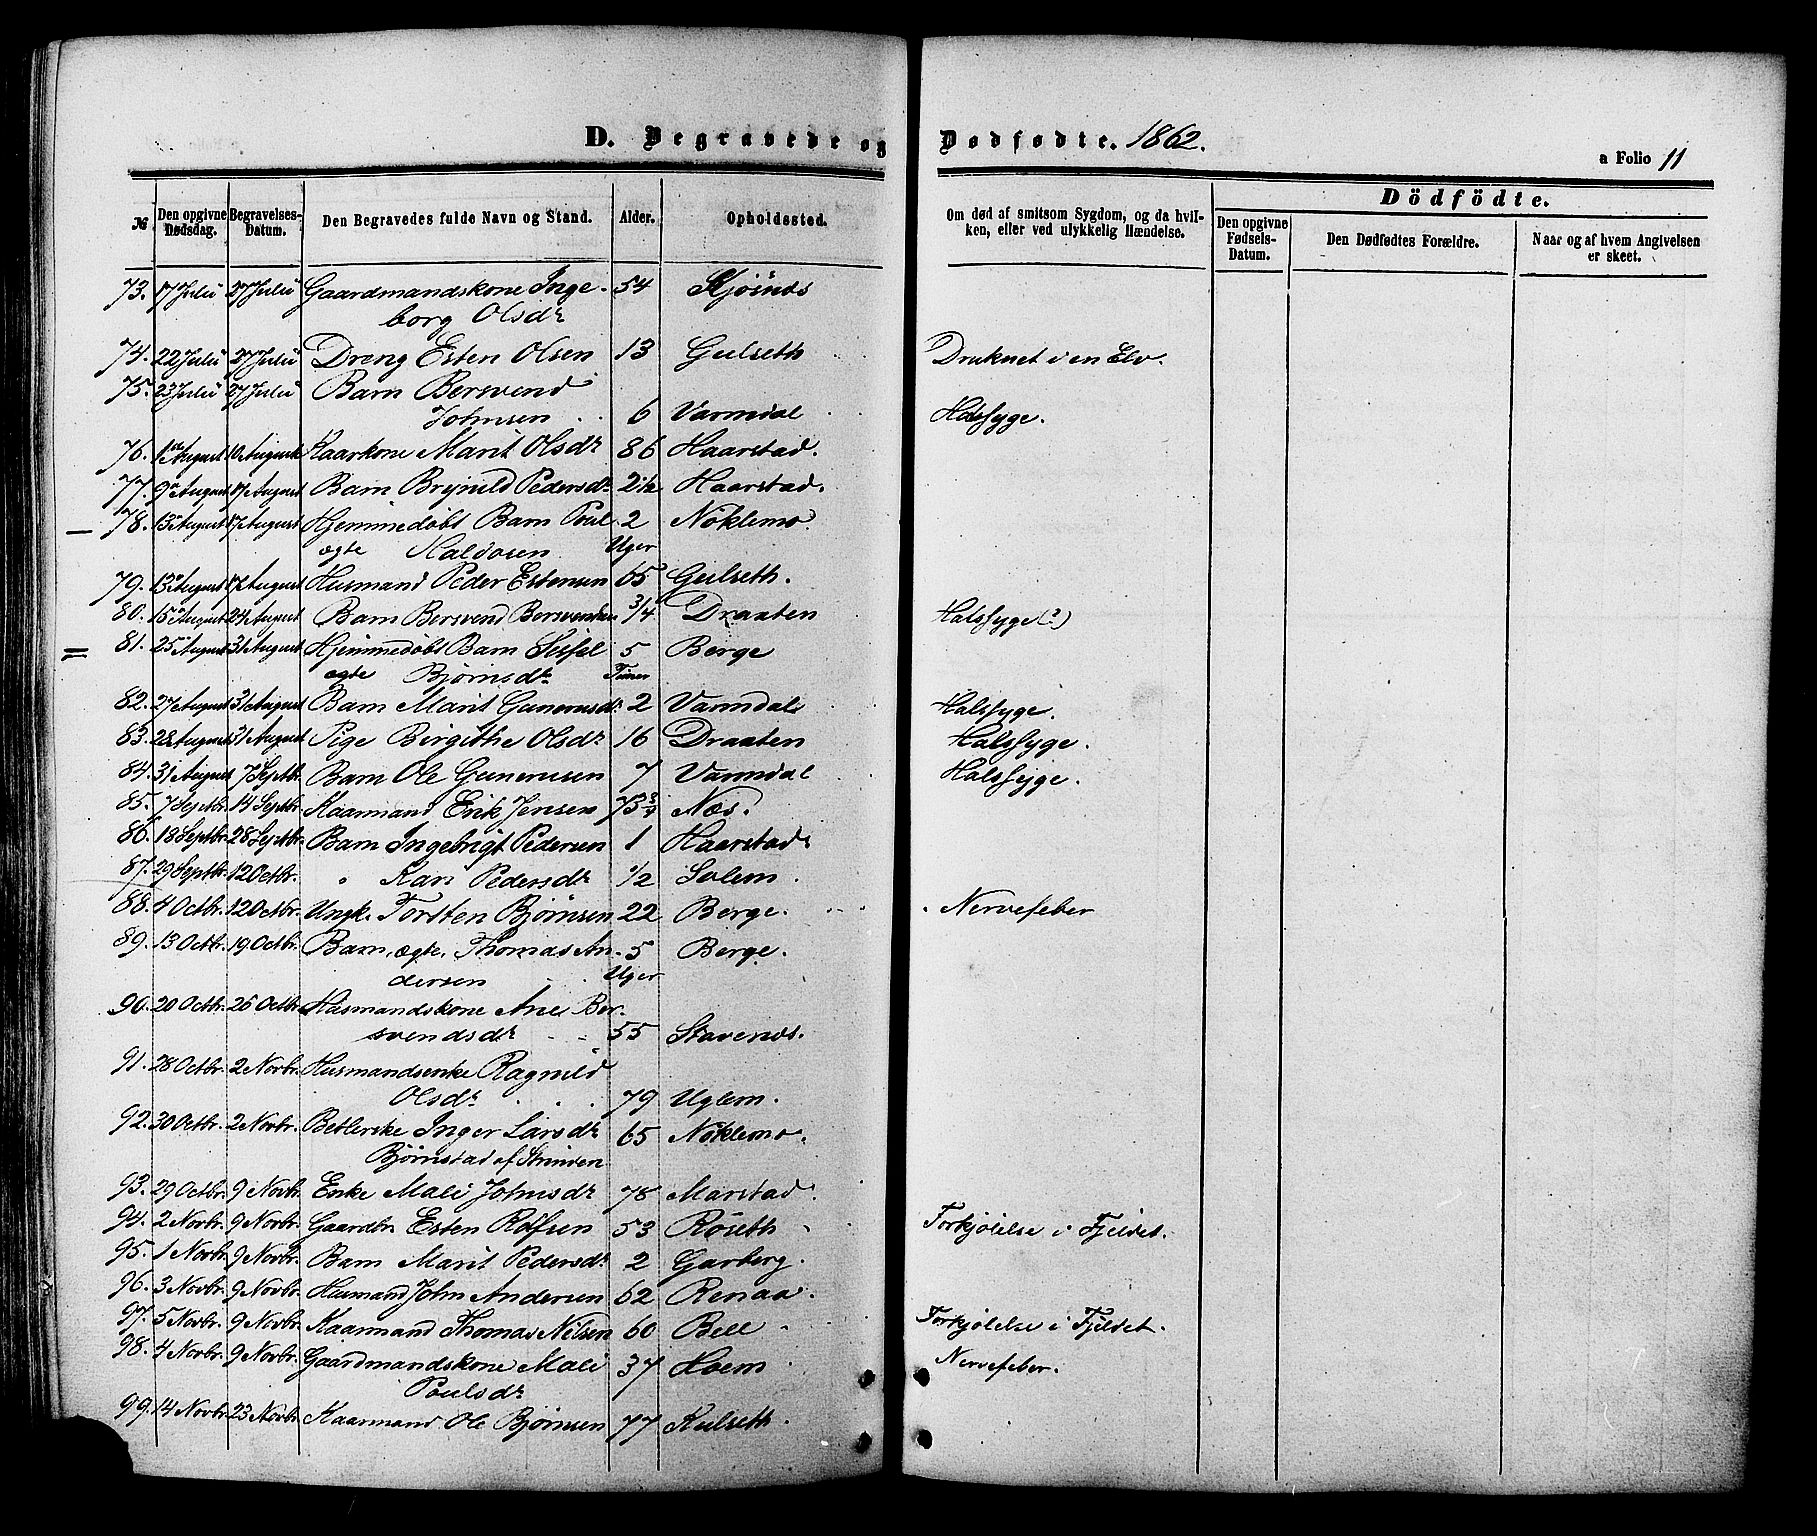 D. Begravede og Dødfødte. 1862.
a Folio 11
№ Den opgivne Dødsdag. Begravelses-Datum. Den Begravedes fulde Navn og Stand. Alder. Opholdssted. Om død af smitsom Sygdom, og da hvil-
ken, eller ved ulykkelig Hændelse. Dödfödte.
Den opgivne Fødsels-Datum. Den Dødfødtes Forældre. Naar og af hvem Angivelsen er skeet.
73. 17 Juli 27 Juli Gaardmandskone Inge- 54
borg Olsdr
74. 22 Juli 27 Juli Dreng Esten Olsen 13 Gulseth Druknet i en Elv.
75. 23 Juli 27 Juli Barn Bersvend
Johnsen 6 Varmdal Halssyge.
76. 1ste August 10 August Kaarkone Marit Olsdr 86 Haarstad.
77. 9de August 17 August Barn Brynild Pedersdr 2½ Haarstad.
78. 13de August 17 August Hjemmedøbt Barn Poul 2 Nöklemo.
ægte Haldosen Uger
79. 13de August 17 August Husmand Peder Estensen 65 Gulseth.
80. 15de August 24 August Barn Bersvend Bersvendsen 3/4 Draaten Halssyge (?)
81. 25 August 31 August Hjemmedøbt Barn Sissel 5 Berge
ægte Bjørnsdr Timer
82. 27 August 31 August Barn Marit Gunerusdr 2 Varmdal Halssyge.
83. 28 August 31 August Pige Birgithe Olsdr 16 Draaten Halssyge.
84. 31 August 7 Septbr. Barn Ole Gunerusen 7 Varmdal Halssyge.
85. 7 Septbr. 14 Septbr. Kaarmand Erik Jensen 73 3/4 Næs.
86. 18 Septbr. 28 Septbr. Barn Ingebrigt Pedersen 1 Haarstad
87. 29 Septbr. 12 Octbr. " Kari Pedersdr 1/2 Solem.
88. 4 Octbr. 12 Octbr. Ungk. Torsten Bjørnsen 22 Berge. Nervefeber
89. 13 Octbr. 19 Octbr. Barn, ægte, Thomas An- 5 Berge.
dersen Uger
90. 20 Octbr. 26 Octbr. Husmandskone Ane Ber-
svendsdr 55 Stavenæs.
91. 28 Octbr. 2 Novbr. Husmandsenke Ragnild
Olsdr 79 Uglem.
92. 30 Octbr. 2 Novbr. Betlerske Inger Larsdr 65 Nöklemo.
Bjørnstad af Strinden
93. 29 Octbr. 9 Novbr. Enke Mali Johnsdr 78 Marstad
94. 2 Novbr. 9 Novbr. Gaardbr. Esten Rolfsen 53 Röseth Forkjølelse i Fjeldet.
95. 1 Novbr. 9 Novbr. Barn Marit Pedersdr 2 Garberg.
96. 3 Novbr. 9 Novbr. Husmand John Andersen 62 Renaa.
97. 5 Novbr. 9 Novbr. Kaarmand Thomas Nilsen 60 Bell Forkjølelse i Fjeldet.
98. 4 Novbr. 9 Novbr. Gaardmandskone Mali 37 Hoem Nervefeber.
Poulsdr
99. 14 Novbr. 23 Novbr. Kaarmand Ole Bjørnsen 77 Kulseth.